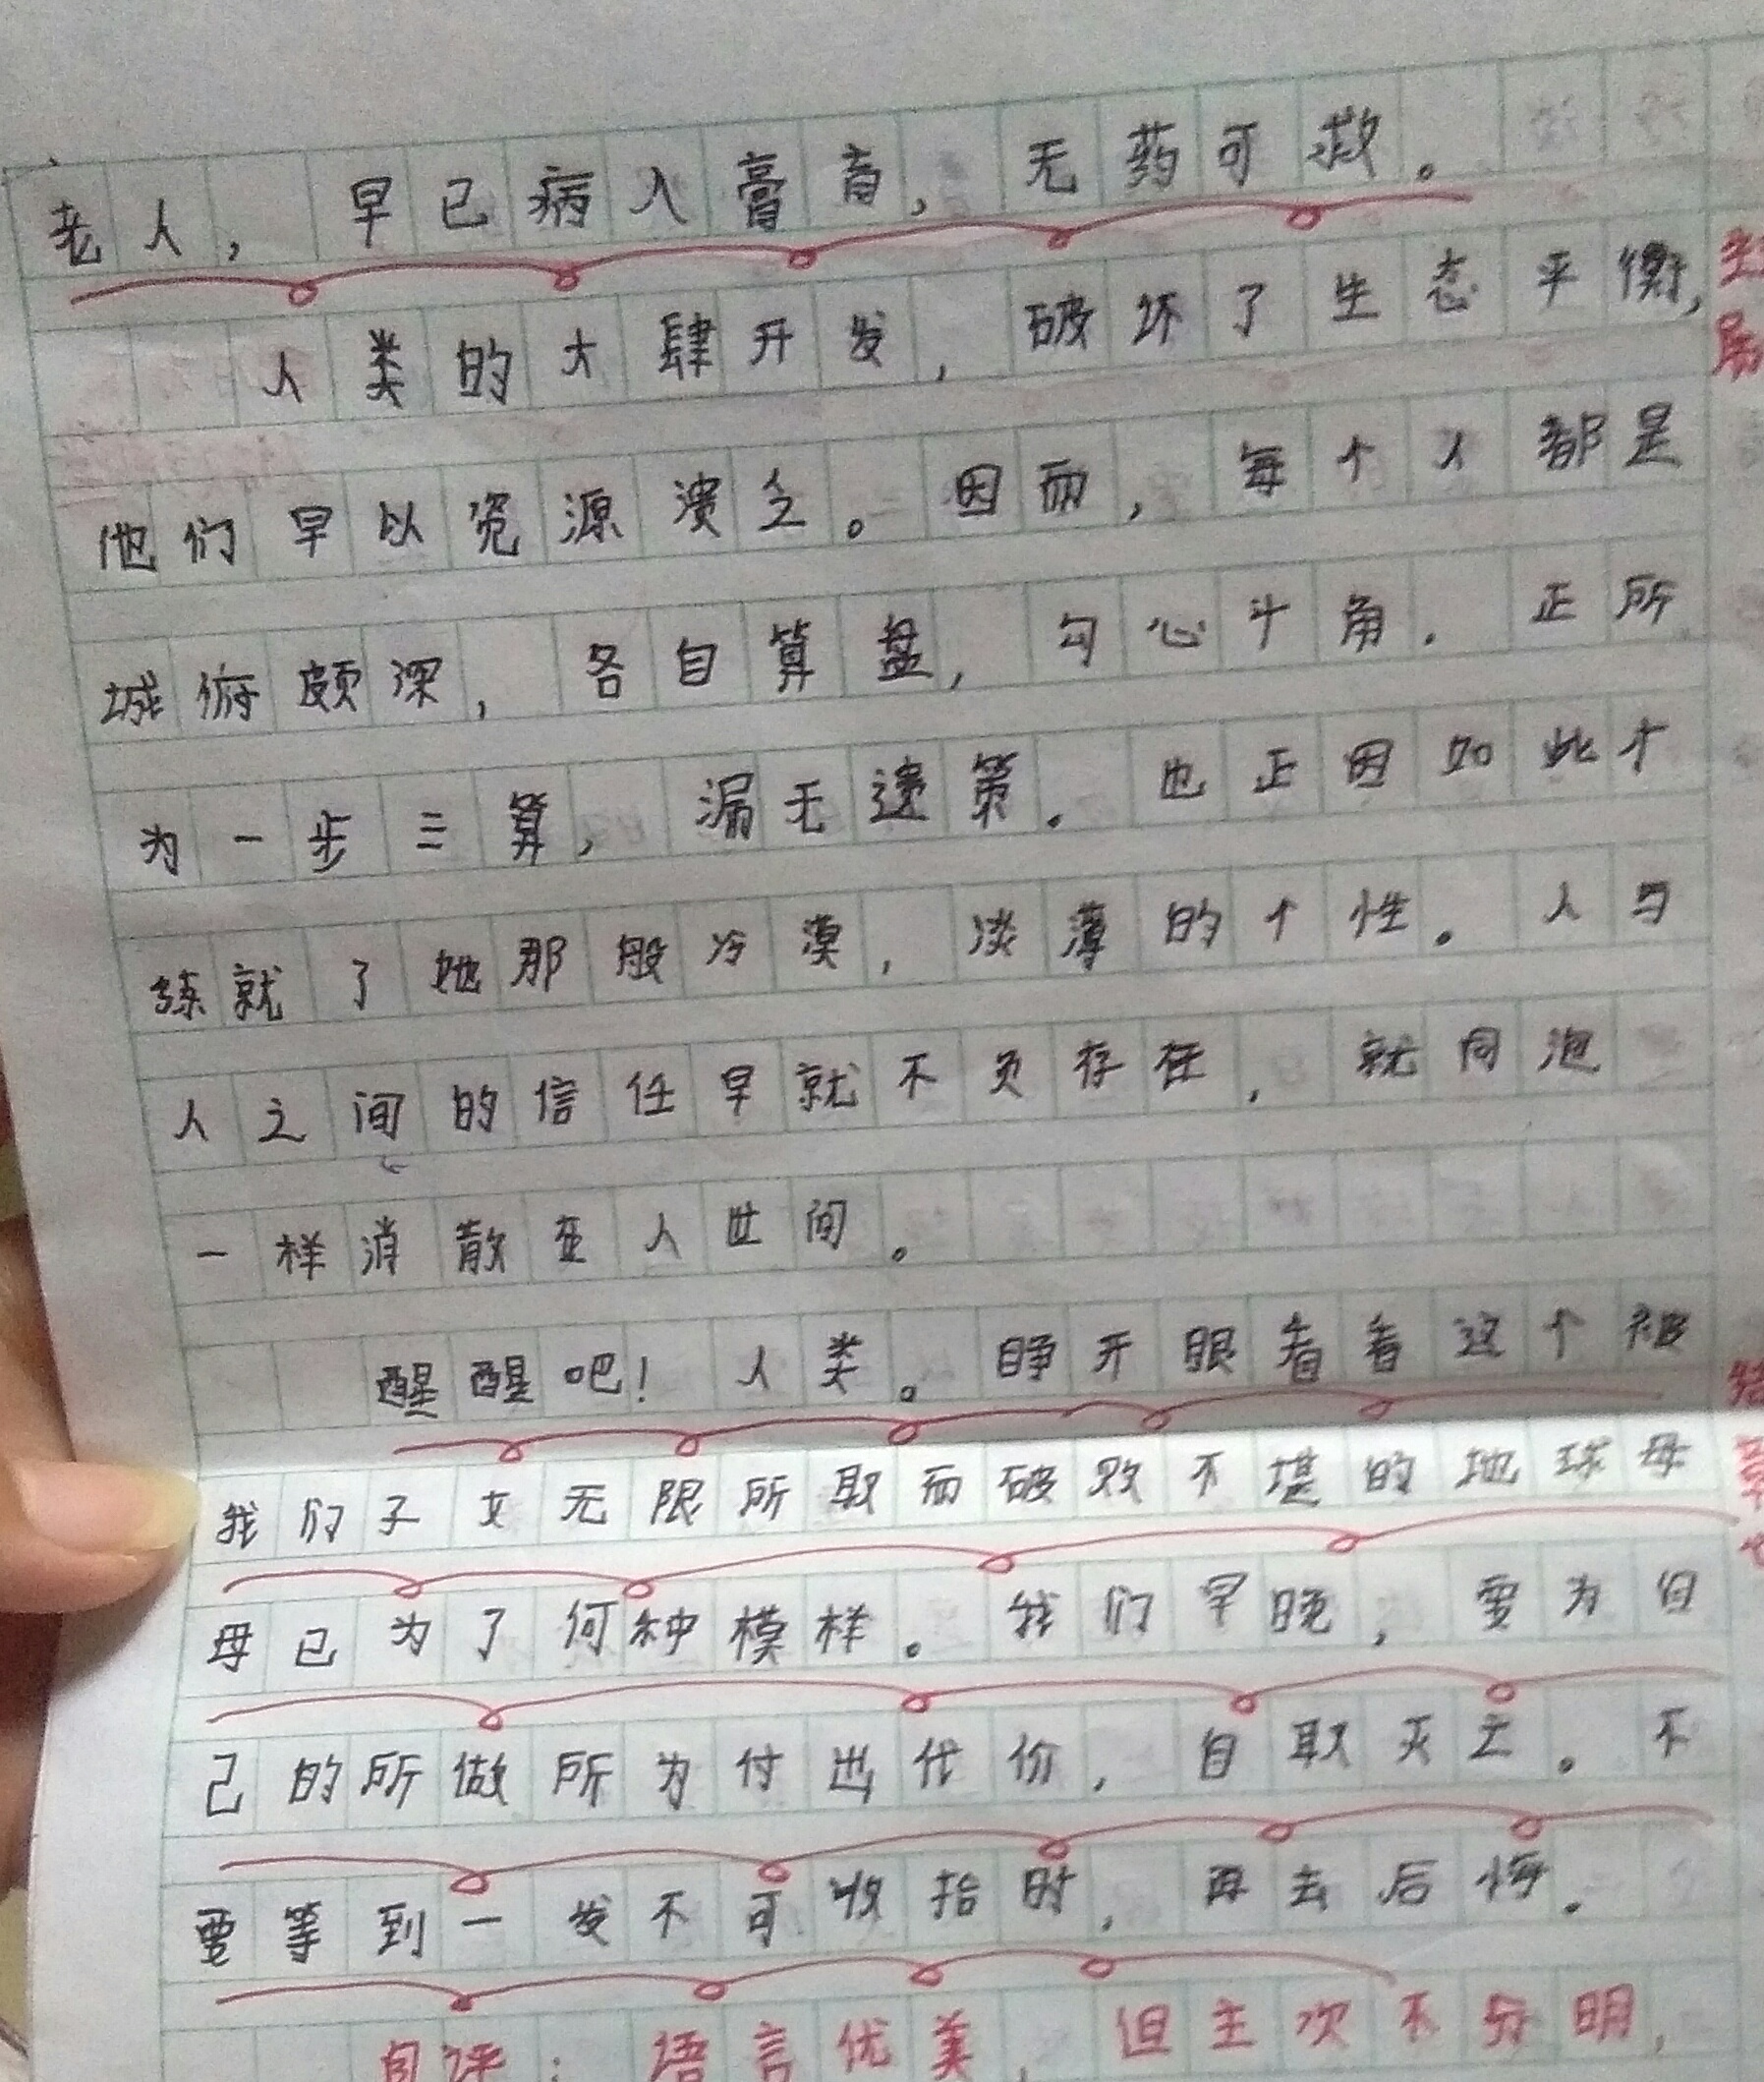 老人，早已病入膏肓，无药可救。
人类的大肆开发，破坏了生态平衡，
他们早以资源溃乏。因而，每个人都是
城俯颇深，各自算盘，勾心斗角．正所
为一步三算，漏无遗策．也正因如此才
练就了她那般冷漠，淡薄的个性。人与
人之间的信任早就不负存在，就同泡
一样消散在人世间。
醒醒吧！人类。睁开眼看看这个被
我们子女无限所取而破败不堪的地球母
母已为了何种模样。我们早晚，要为自
己的所做所为付出代价，自取灭亡。不
要等到一发不可收拾时，再去后悔。
自评：语言优美，但主次不分明，